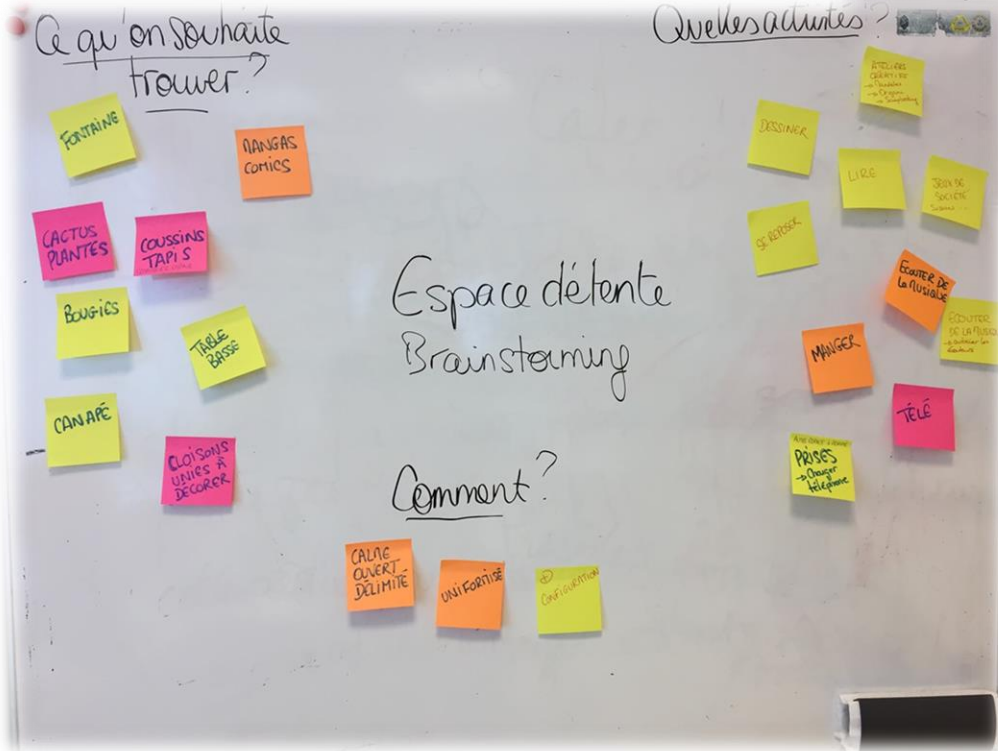 Ce qu'on souhaite
trouver?
FONTAINE
MANGAS
COMICS
CACTUS
PLANTES
COUSSINS
TAPIS
BOUGIES
TABLE
BASSE
CANAPÉ
CLOISONS
UNIES À
DÉCORER
Espace détente
Brainstorming
Comment?
CALME
OUVERT
DÉLIMITÉ
UNIFORMISÉ
CONFIGURATION
Quelles activités?
ATELIERS
CRÉATIFS
DESSINER
LIRE
JEUX DE
SOCIÉTÉ
SE REPOSER
ÉCOUTER DE
LA MUSIQUE
ECOUTER
DE LA MUSIQUE
MANGER
TÉLÉ
PRISES
→ Charger
téléphone